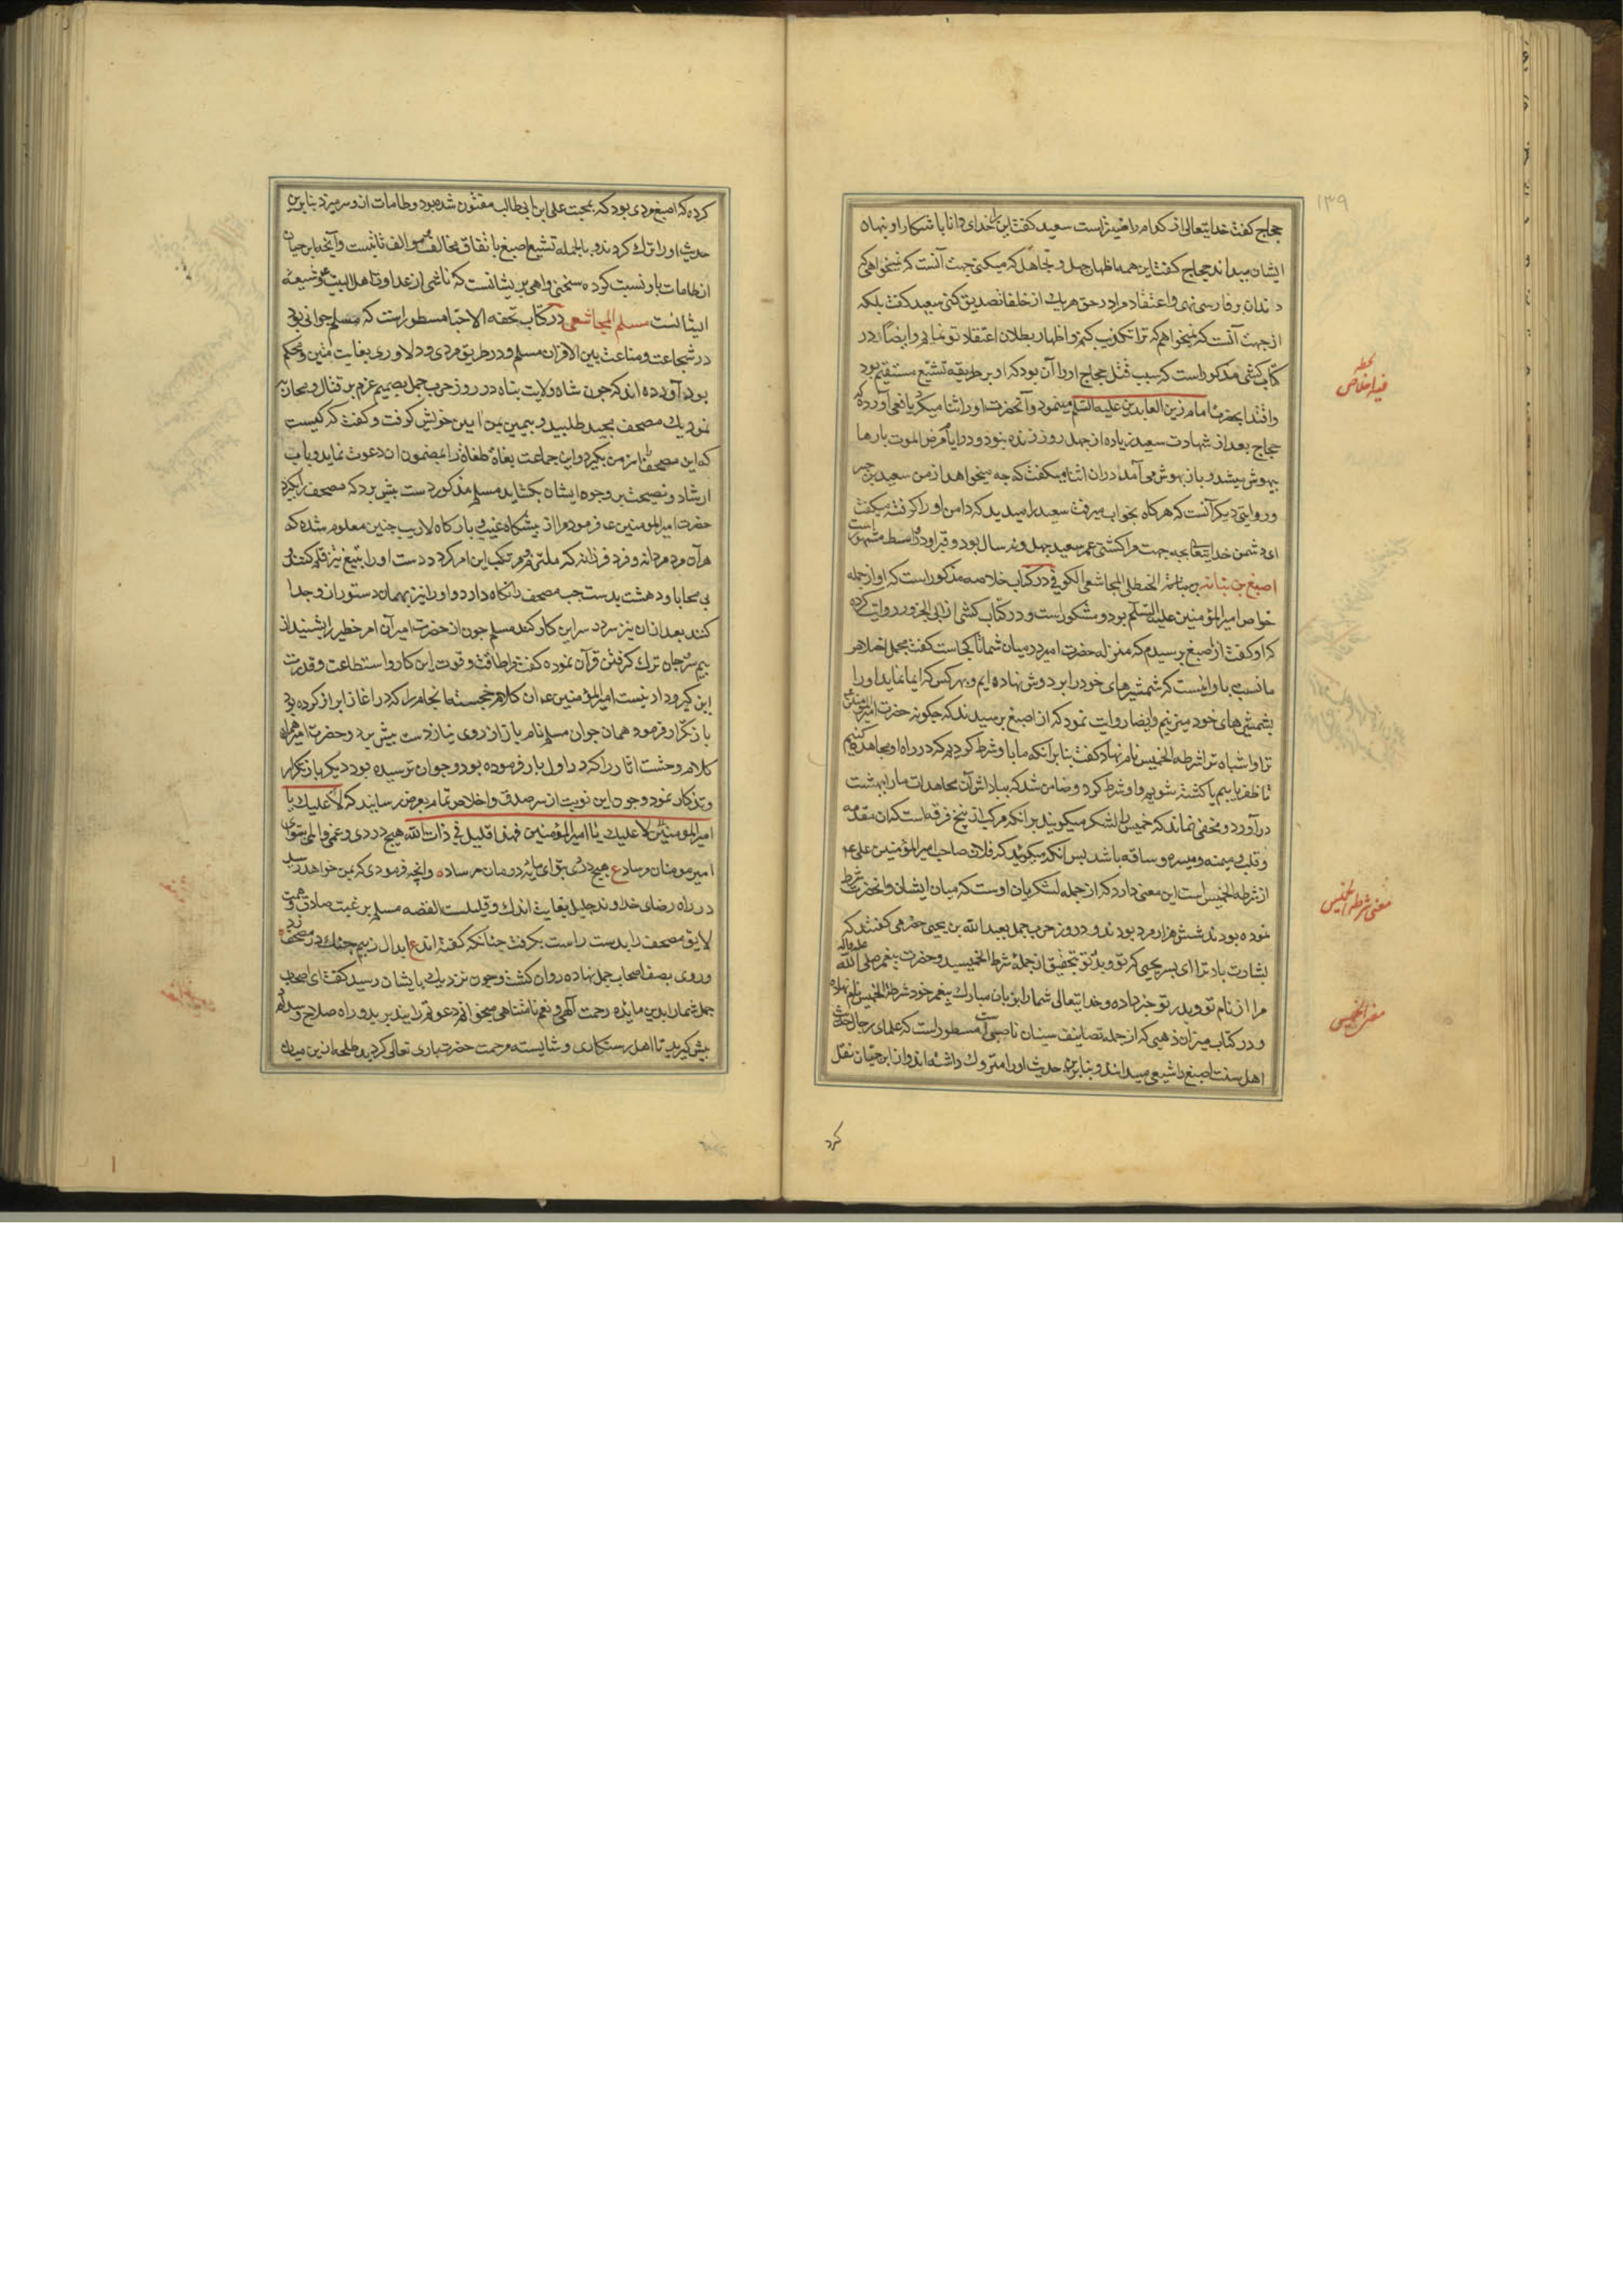 ۱۳۹
حجاج گفت خدایتعالی از کدام راضیتر است سعید گفت این را خدای دانا باشکار او نهان
ایشان میداند حجاج گفت این همه اظهار جهل و تجاهل که میکنی جهت آنست که نمیخواهی که
دندان و فارسی نهی و اعتقاد مرا در حق هر یک از خلفا تصدیق کنی سعید گفت بلکه
از جهت آنست که نمیخواهم که ترا تکذیب کنم و اظهار بطلان اعتقاد تو نمایم و ایضا در
کتاب کشی مذکور است که سبب قتل حجاج او را آن بود که او بر طریقه تشیع مستقیم بود
واقتدا بحضرت امام زین العابدین علیه السلم مینمود و آنحضرت او را ثنا میکرد یافعی آورده که
حجاج بعد از شهادت سعید زیاده از چهل روز زنده نبود و در ایام مرض الموت بارها
بیهوش میشد و باز بهوش می آمد و در آن اثنا میگفت که چه میخواهد از من سعید بن جبیر
و روایتی دیگر آنست که هرگاه بخواب میرفت سعید را میدید که دامن او را گرفته میگفت
ای دشمن خدایتعالی بچه جهت مرا کشتی عمر سعید چهل و نه سال بود و قبر او در واسط مشهور است
اصبغ بن نباته بن نباتة الحنظلی المجاشعی الکوفی در کتاب خلاصه مذکور است که او از جمله
خواص امیرالمؤمنین علیه السلم بود و مشکور است و در کتاب کشی از ابی الجارود روایت کرده
که او گفت از اصبغ پرسیدم که منزله حضرت امیر در میان شما تا کجاست گفت مجمل اخلاص
ما نسبت باو اینست که شمشیرهای خود را بر دوش نهاده ایم و بهر کس که ایما نماید او را
بشمشیرهای خود میزنیم و ایضا روایت نمود که از اصبغ پرسیدند که چگونه حضرت امیرالمومنین
ترا و اشباه ترا شرطه الخمیس نام نهاد گفت بنابر آنکه ما با او شرط کردیم که در راه او مجاهده کنیم
تا ظفر یابیم یا کشته شویم و او شرط کرد و ضامن شد که بپاداش آن مجاهدات ما را ببهشت
درآورد و مخفی نماند که خمیس لشکر میگویند بر انکه مرکب از پنج فرقه است که آن مقدمه
و قلب و میمنه و میسره و ساقه باشد پس آنکه میگویند که فلان صاحب امیرالمؤمنین علی ع
از شرطه الخمیس است این معنی دارد که از جمله لشکریان اوست که میان ایشان و آنحضرت شرط
نموده بودند شش هزار مرد بودند و در روز حرب جمل بعبد الله بن یحیی حضرمی گفتند که
بشارت باد ترا ای پسر یحیی که تو و پدر تو بتحقیق از جمله شرط الخمیسید و حضرت پیغمبر صلی الله علیه واله
مرا از نام تو و پدر تو خبر داده و خدایتعالی شما را بر زبان مبارک پیغمبر خود شرطة الخمیس نام نهاده
و در کتاب میزان ذهبی که از جمله تصانیف سنیان ناصبی است مسطور است که علمای رجال حدیث
اهل سنت اصبغ را شیعی میدانند و بنابرین حدیث او را متروک داشته اند و از ابن حیان نقل
کرد
معنی شرطه الخمیس
معنی الخمیس
کرده که اصبغ مردی بود که بمحبت علی ابن ابی طالب مفتون شده بود و طامات از و سر میزد بنابرین
حدیث او را ترک کردند و بالجمله تشیع اصبغ باتفاق مخالف و موالف ثابتست و آنچه ابن حیان
از طامات باو نسبت کرده سخنی واهی پریشانست که ناشی از عداوت اهل البیت و شیعه
ایشانست مسلم المجاشعی در کتاب تحفه الاحبا مسطور است که مسلم جوانی بود
در شجاعت و مناعت بین الاقران مسلم و در طریق مردی و دلاوری بغایت متین و محکم
بود آورده اند که چون شاه ولایت پناه در روز حرب جمل تصمیم عزم بر قتال و محاربه
نمود یک مصحف مجید طلبید و بیمین یمن آیین خویش گرفت و گفت که کیست
که این مصحف را از من بگیرد و این جماعت بغاة طغاة را بمضمون آن دعوت نماید و باب
ارشاد و نصیحت بر وجوه ایشان بگشاید مسلم مذکور دست پیش برد که مصحف را بگیرد
حضرت امیرالمومنین ع فرمود مرا از پیشگاه غیب بارگاه لاریب چنین معلوم شده که
هر آن مرد مردانه و فرد فرزانه که ملتزم و مرتکب این امر گردد دست او را بتیغ تیز قلم کنند
بی محابا و دهشت بدست چپ مصحف را نگاه دارد و او را نیز بهمان دستور از و جدا
کنند بعد از آن نیز سر در سر این کار کند مسلم چون از حضرت امیر آن امر خطیر را بشنید از
بیم سر و جان ترک گرفتن قرآن نموده گفت مرا طاقت و قوت این کار و استطاعت و قدرت
این گیر و دار نیست امیرالمؤمنین ع آن کلام خجسته انجام را که در آغاز ابراز کرده بود
باز تکرار فرمود همان جوان مسلم نام باز از روی نیاز دست پیش برد و حضرت امیر همان
کلام وحشت آثار را که در اول بار فرموده بود و جوان ترسیده بود دیگر باز تکرار
و تذکار نمود و جوان این نوبت از سر صدق و اخلاص تمام بعرض رسانید که لا علیک یا
امیرالمومنین لا علیک یا امیرالمؤمنین فهذا قلیل فی ذات الله هیچ دردی و غمی و المی بتو ای
امیر مومنان مرساد ع هیچ دردی بتو ای مایه درمان مرساد ه وانچه فرمودی که بمن خواهد رسید
در راه رضای خداوند جلیل بغایت اندک و قلیلست القصه مسلم برغبت صادق و همت
لایق مصحف را بدست راست بگرفت چنانکه گفته اند ع ابدال ز بیم چنگ در مصحف زد ه
و روی بصف اصحاب جمل نهاده روان گشت و چون نزدیک بایشان رسید گفت ای اصحاب
جمل شما را بدین مایده رحمت الهی و نعم نامتناهی میخوانم دعوتم را بپذیرید و راه صلاح و سداد
پیش گیرید تا اهل رستگاری و شایسته مرحمت حضرت باری تعالی گردید طلحه از بن میان